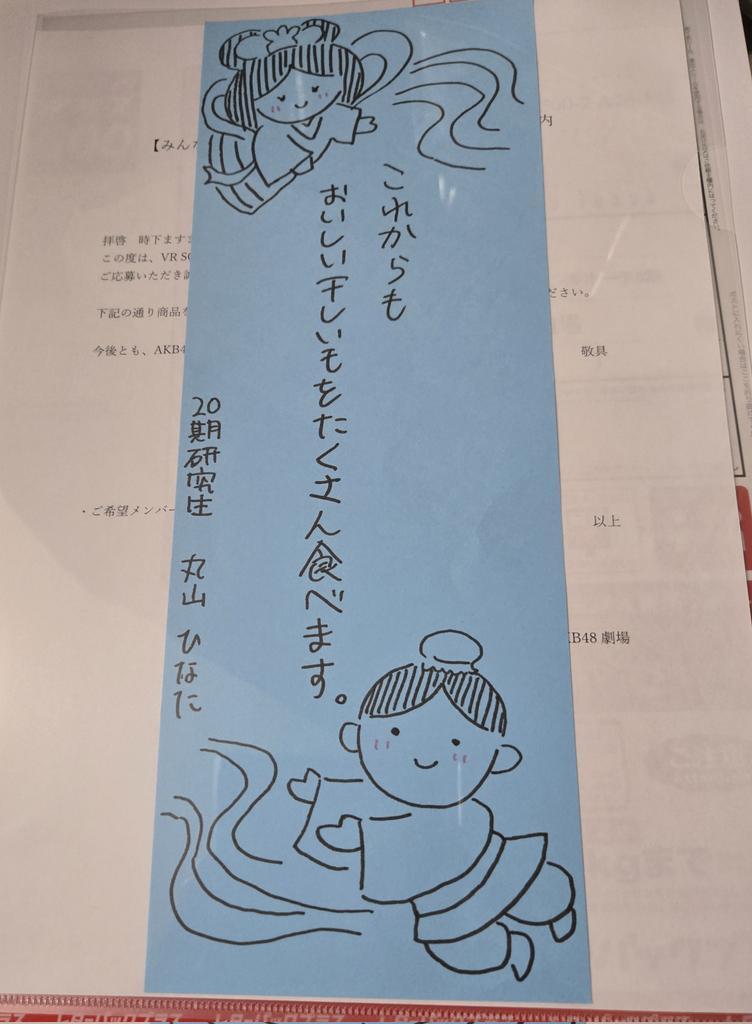 これからも
おいしい干しいもをたくさん食べます。
20期研究生 丸山 ひなた
【みん
内
拝啓 時下ます
この度は、VR
ご応募いただき
ださい。
下記の通り商品
今後とも、AKB4
敬具
・ご希望メンバー
以上
KB48 劇場